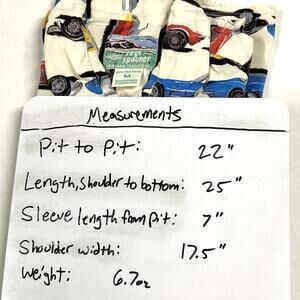 reyn
spooner
M
Measurements
Pit to Pit: 22"
Length, shoulder to bottom: 25"
Sleeve length from pit: 7"
Shoulder width: 17.5"
Weight: 6.7oz